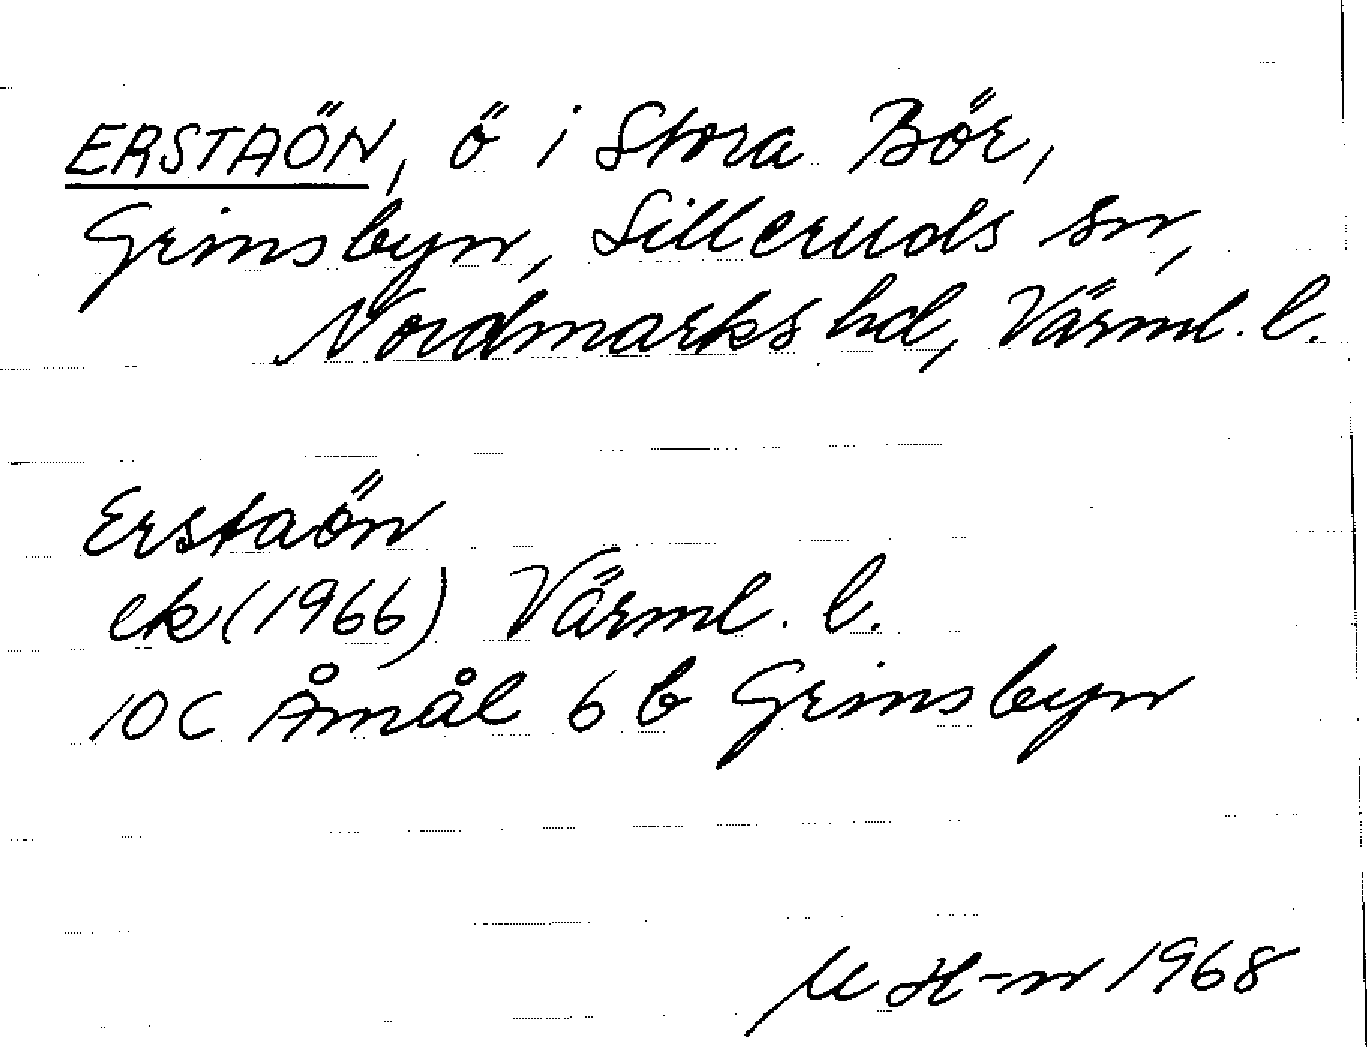 ERSTAÖN, ö i Stora Bör,
Grinsbyn, Silleruds sn,
Nordmarks hd, Värml. l.
Erstaön
ek (1966) Värml. l.
10C Åmål 6 b Grinsbyn
H-n 1968